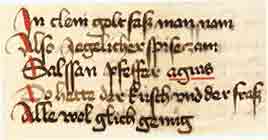 In clem golt fasz man nam
Also Jegelicher spise zam
Salssan pfeffer agius
Do hette der kusch vnd der frasz
Alle wol glich genug